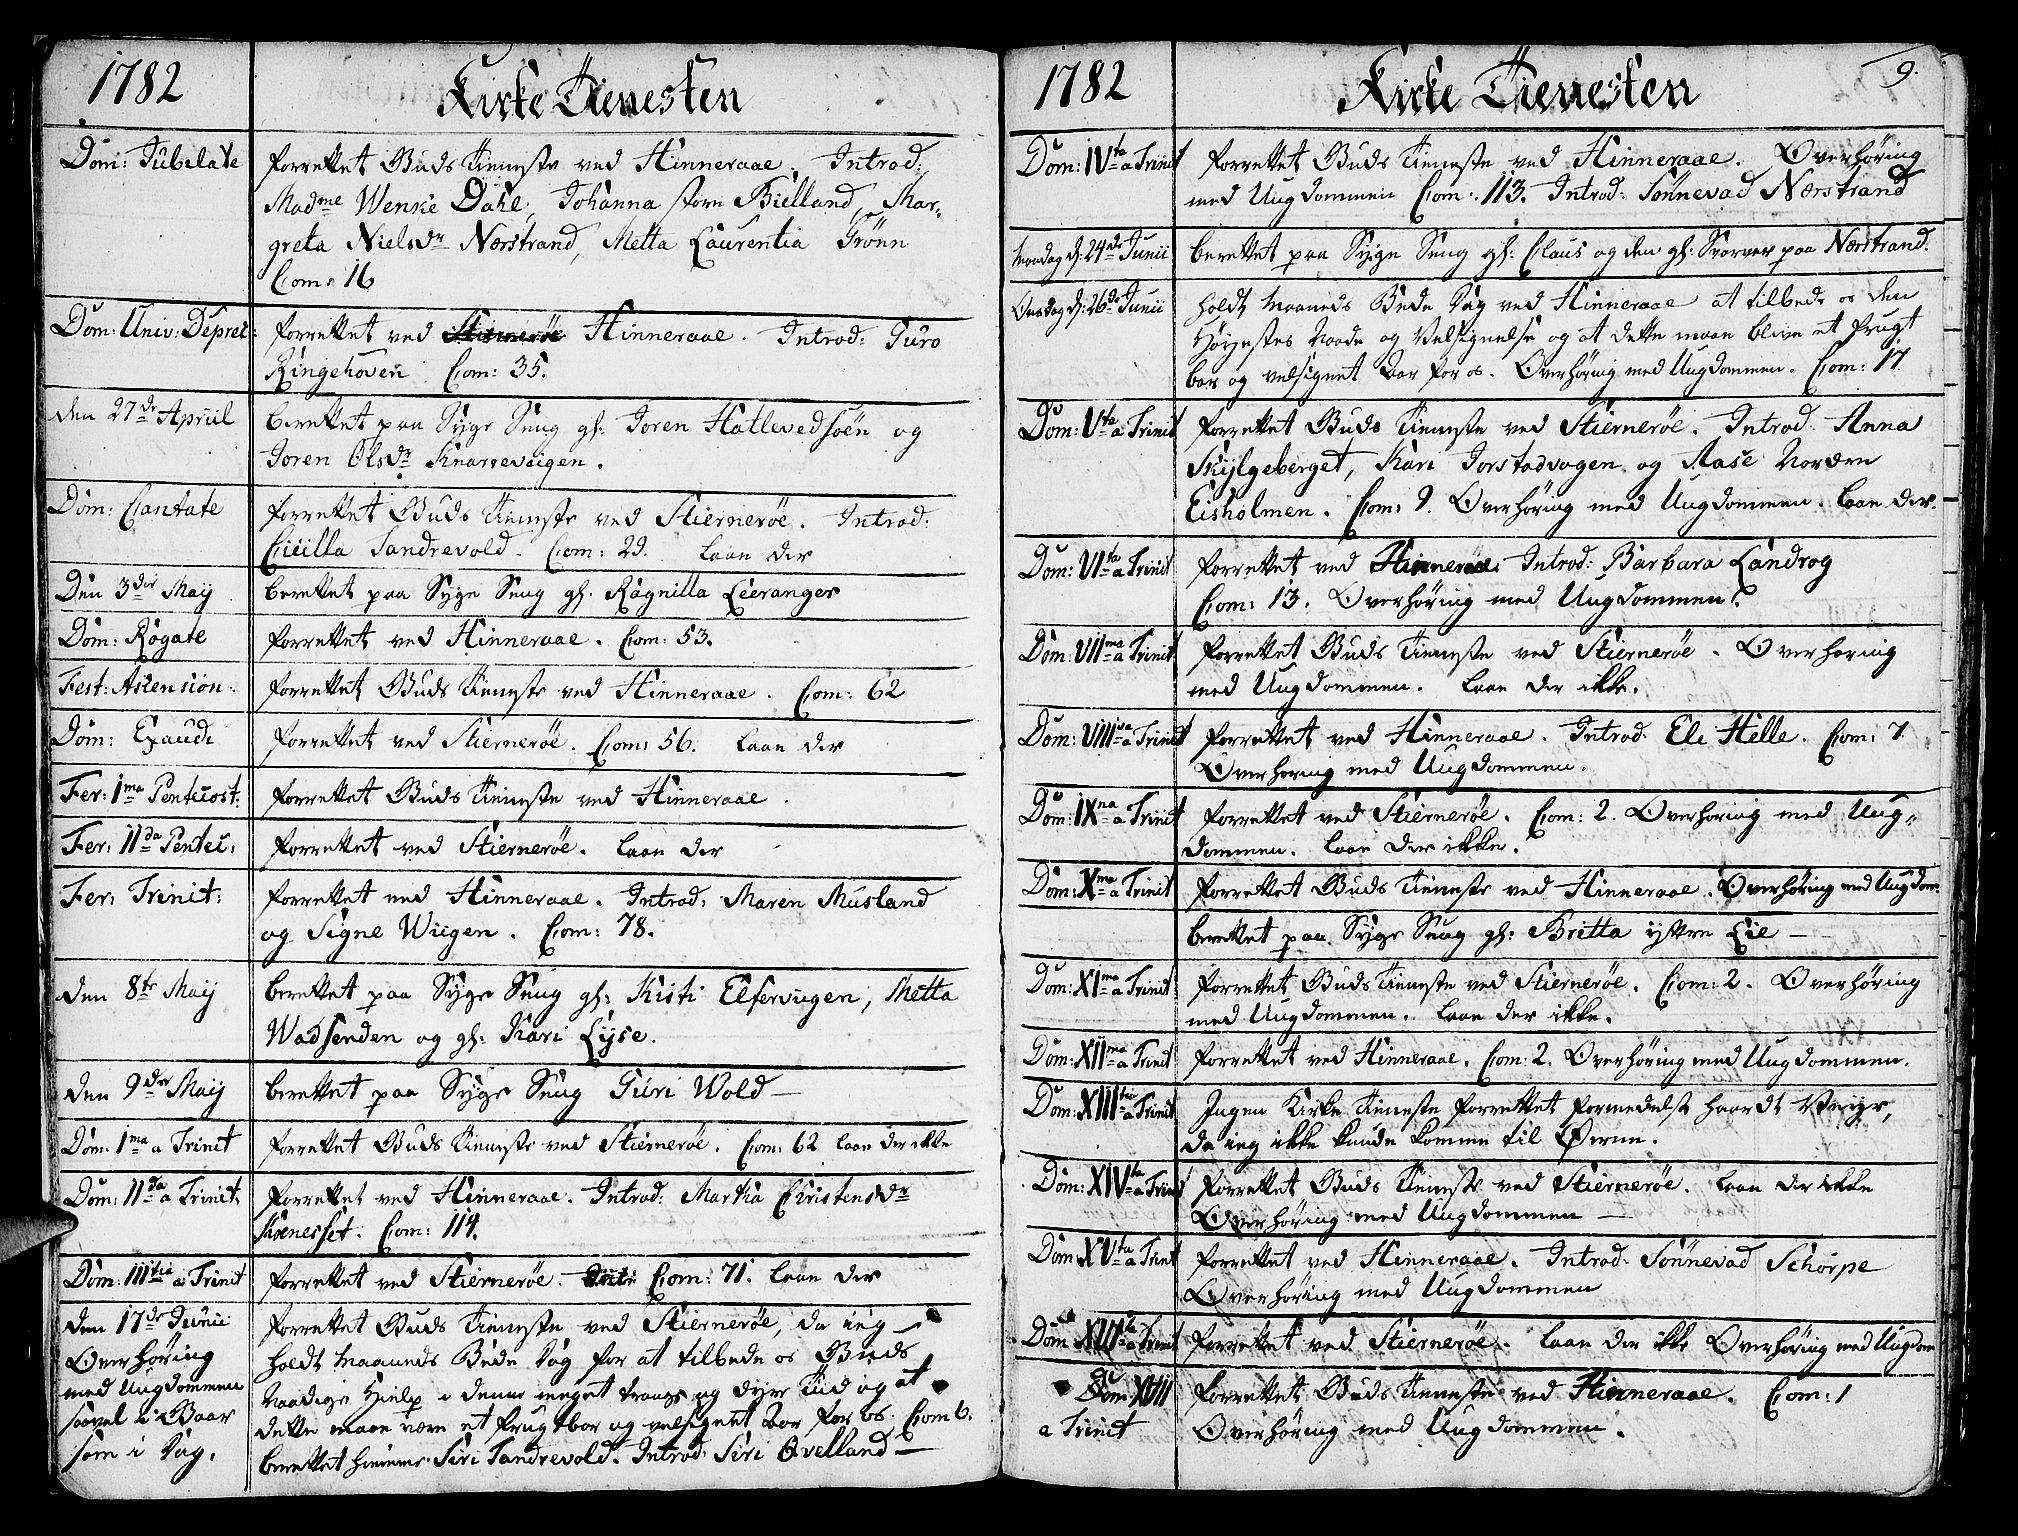 1782
Kirke Tienesten
Dom: Jubelate
forrettet Guds Tieneste ved Hinneraae. Introd:
Mad.me Wenke Dahl, Johanna store Bielland, Mar-
greta Nielsdr Nærstrand, Metta Laurentia Grönn
Com: 16
Dom: Univ: Depret:
forrettet ved Hinneraae. Introd: Guro
Ringehoven Com: 35.
den 27de April
berettet paa Syge Seng gl. Joren Hatlevedsöen og
Joren Olsdr Knarrevaigen.
Dom: Cantate
forrettet Guds Tieneste ved Stierneröe. Introd:
Cicilla Sandrevold. Com: 29. laae der
Den 3die Maij
berettet paa Syge Seng gl. Ragnilla Leeranger
Dom: Rogate
forrettet ved Hinneraae. Com: 53.
Fest: Ascension:
forrettet Guds Tieneste ved Hinneraae. Com: 62
Dom: Exaudi
forrettet ved Stierneröe. Com: 56. laae der
Fer: 1ma Pentecost:
forrettet Guds Tieneste ved Hinneraae.
Fer: IIda Pentec:
forrettet ved Stierneröe. laae der
Fer: Trinit:
forrettet ved Hinneraae. Introd: Maren Musland
og Signe Wiigen. Com: 78.
den 8te Maij
berettet paa Syge Seng gl: Kisti Elfervigen, Metta
Wadsenden og gl: Kari Lyse.
den 9de Maij
berettet paa Syge Seng Guri Wold—
Dom: 1ma a Trinit
forrettet Guds Tieneste ved Stierneröe. Com: 62 laae der ikke
Dom: IIda a Trinit.
forrettet ved Hinneraae. Introd: Martha Christensdr
Com: 114.
Dom: IIItia a Trinit
forrettet ved Stierneröe. Com: 71. laae der
den 17de Junii
forrettet Guds Tieneste ved Stierneröe, da ieg
Overhöring
holdt Maaneds Bede Dag for at tilbede os Guds
med Ungdommen
Naadige Hielp i denne meget trange og dyre Tid og at
saavel i Gaar
dette maae være et frugtbar og velsignet Aar for os. Com 6.
som i Dag.
berettet hiemme Siri Sandrevold. Introd: Siri Qvelland—
1782
Kirke Tienesten
9.
Dom: IVta a Trinit
forrettet Guds Tieneste ved Hinneraae. Overhöring
med Ungdommen Com: 113. Introd: Sönnevad Nærstrand
Mandag d: 24de Junii
berettet paa Syge Seng gl: Claus og den gl: paa Nærstrand.
Onsdag d: 26de Junii
holdt Maaneds Bede Dag ved Hinneraae at tilbede os den
Høyestes Naade og Velsignelse og at dette maae blive et frugt
bar og velsignet Aar for os. Overhöring med Ungdommen. Com: 17
Dom: Vta a Trinit
forrettet Guds Tieneste ved Stierneröe. Introd. Anna
Skiylgeberget, Kari Jorstadvagen og Aase Nordre
Eisholmen. Com: 9. Overhöring med Ungdommen. laae der.
Dom: VIta a Trinit
forrettet ved Hinneraae. Introd: Barbara Landrog
Com: 13. Overhöring med Ungdommen.
Dom: VIIma a Trinit
forrettet Guds Tieneste ved Stierneröe. Overhöring
med Ungdommen. laae der ikke.
Dom: VIIIva a Trinit
forrettet ved Hinneraae. Introd. Eli Helle. Com: 7.
Overhöring med Ungdommen.
Dom: IXna a Trinit
forrettet ved Stierneröe. Com: 2. Overhöring med Ung-
dommen. laae der ikke.
Dom: Xma a Trinit
forrettet Guds Tieneste ved Hinneraae. Overhöring med Ungdom.
berettet paa Syge Seng gl: Britta ystre Lie—
Dom: XIma a Trinit
forrettet Guds Tieneste ved Stierneröe. Com: 2. Overhöring
med Ungdommen. laae der ikke.
Dom: XIIma a Trinit
forrettet ved Hinneraae. Com: 2. Overhöring med Ungdommen.
Dom: XIIItia a Trinit
Ingen Kirke Tieneste forrettet formedelst haardt Veyr,
da ieg ikke kunde komme til Øerne.
Dom: XIVta a Trinit
forrettet Guds Tieneste ved Stierneröe. laae der ikke
Overhöring med Ungdommen —
Dom XVta a Trinit
forrettet ved Hinneraae. Introd. Sönnevad Schorpe
Overhöring med Ungdommen
Dom XVIta a Trinit
forrettet ved Stierneröe. laae der ikke Overhöring med Ungdom
Dom XVIII
forrettet Guds Tieneste ved Hinneraae. Com: 1
a Trinit
Overhöring med Ungdommen.